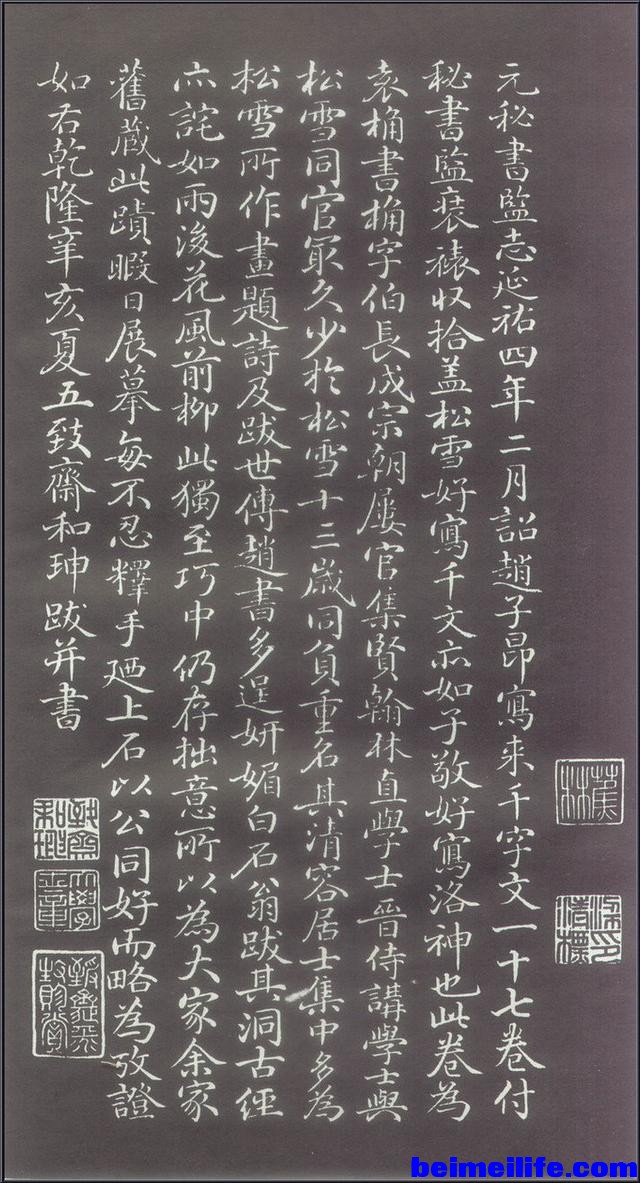 元秘書監志延祐四年二月詔趙子昂寫来千字文一十七卷付
秘書監裒褾収拾盖松雪好寫千文亦如子敬好寫洛神也此卷為
袁桷書桷字伯長成宗朝屡官集賢翰林直學士晉侍講學士與
松雪同官冣久少於松雪十三歲同負重名其清容居士集中多為
松雪所作畫題詩及跋世傳趙書多逞妍媚白石翁跋其洞古經
亦詫如雨後花風前柳此獨至巧中仍存拙意所以為大家余家
舊藏此蹟暇日展摹每不忍釋手廼上石以公同好而略為攷證
如右乾隆辛亥夏五致齋和珅跋并書
致齋和珅
蕉林
beimeilife.com